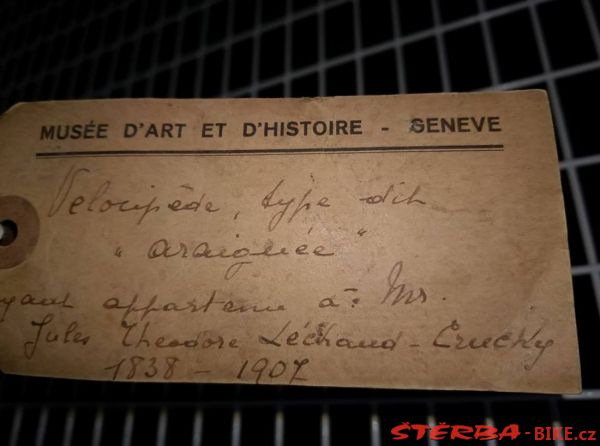 MUSÉE D'ART ET D'HISTOIRE - GENEVE
Velocipède, type dit
"araignée"
yant appartenu à Mr.
Jules Theodore Léchaud-Crucky
1838 - 1907
STERBA-BIKE.cz